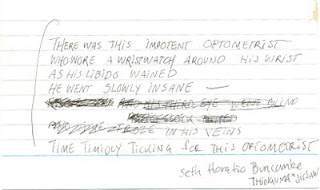 THERE WAS THIS IMPOTENT OPTOMETRIST
WHO WORE A WRISTWATCH AROUND HIS WRIST
AS HIS LIBIDO WAINED
HE WENT SLOWLY INSANE —
AND HIS THIRD EYE WENT BLIND
CLOCK
FROZE IN HIS VEINS
TIME TIMIDLY TICKING FOR THIS OPTOMETRIST
Seth Horatio Buncombe